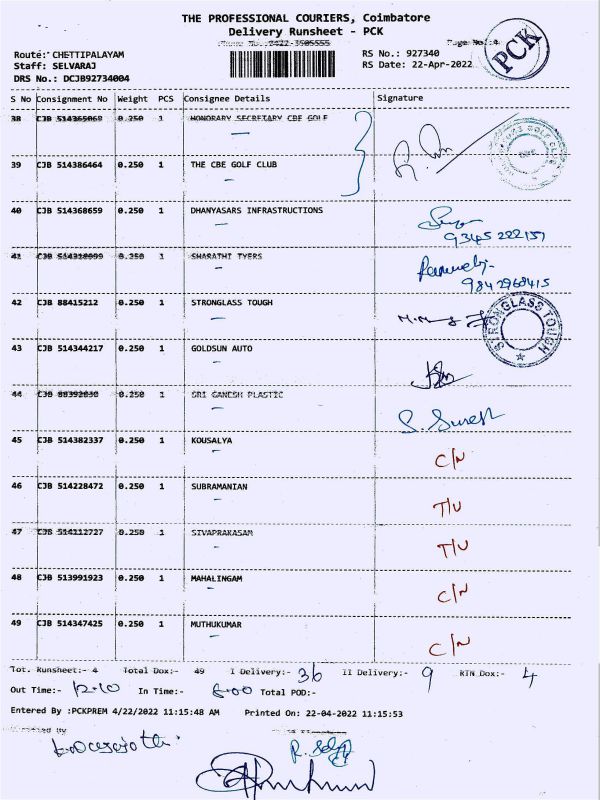 THE PROFESSIONAL COURIERS, Coimbatore
Delivery Runsheet - PCK
Phone No.:0422-3505555
Page No.:4
PCK
Route: CHETTIPALAYAM
RS No.: 927340
Staff: SELVARAJ
RS Date: 22-Apr-2022
DRS No.: DCJB92734004
S No Consignment No Weight PCS Consignee Details Signature
38 CJB 0.250 1 HONORARY SECRETARY CBE GOLF
39 CJB 514386464 0.250 1 THE CBE GOLF CLUB
40 CJB 514368659 0.250 1 DHANYASARS INFRASTRUCTIONS
9345 222157
41 CJB 0.250 1 SHARATHI TYERS
9842968415
42 CJB 88415212 0.250 1 STRONGLASS TOUGH
STRONGLASS TOUGH
43 CJB 514344217 0.250 1 GOLDSUN AUTO
44 CJB 0.250 1 SRI GANESH PLASTIC
S. Suresh
45 CJB 514382337 0.250 1 KOUSALYA C/N
46 CJB 514228472 0.250 1 SUBRAMANIAN T/U
47 CJB 514112727 0.250 1 SIVAPRAKASAM T/U
48 CJB 513991923 0.250 1 MAHALINGAM C/N
49 CJB 514347425 0.250 1 MUTHUKUMAR C/N
Tot. Runsheet:- 4 Total Dox:- 49 I Delivery:- 36 II Delivery:- 9 RTN Dox:- 4
Out Time:- 12.10 In Time:- 6.00 Total POD:-
Entered By :PCKPREM 4/22/2022 11:15:48 AM Printed On: 22-04-2022 11:15:53